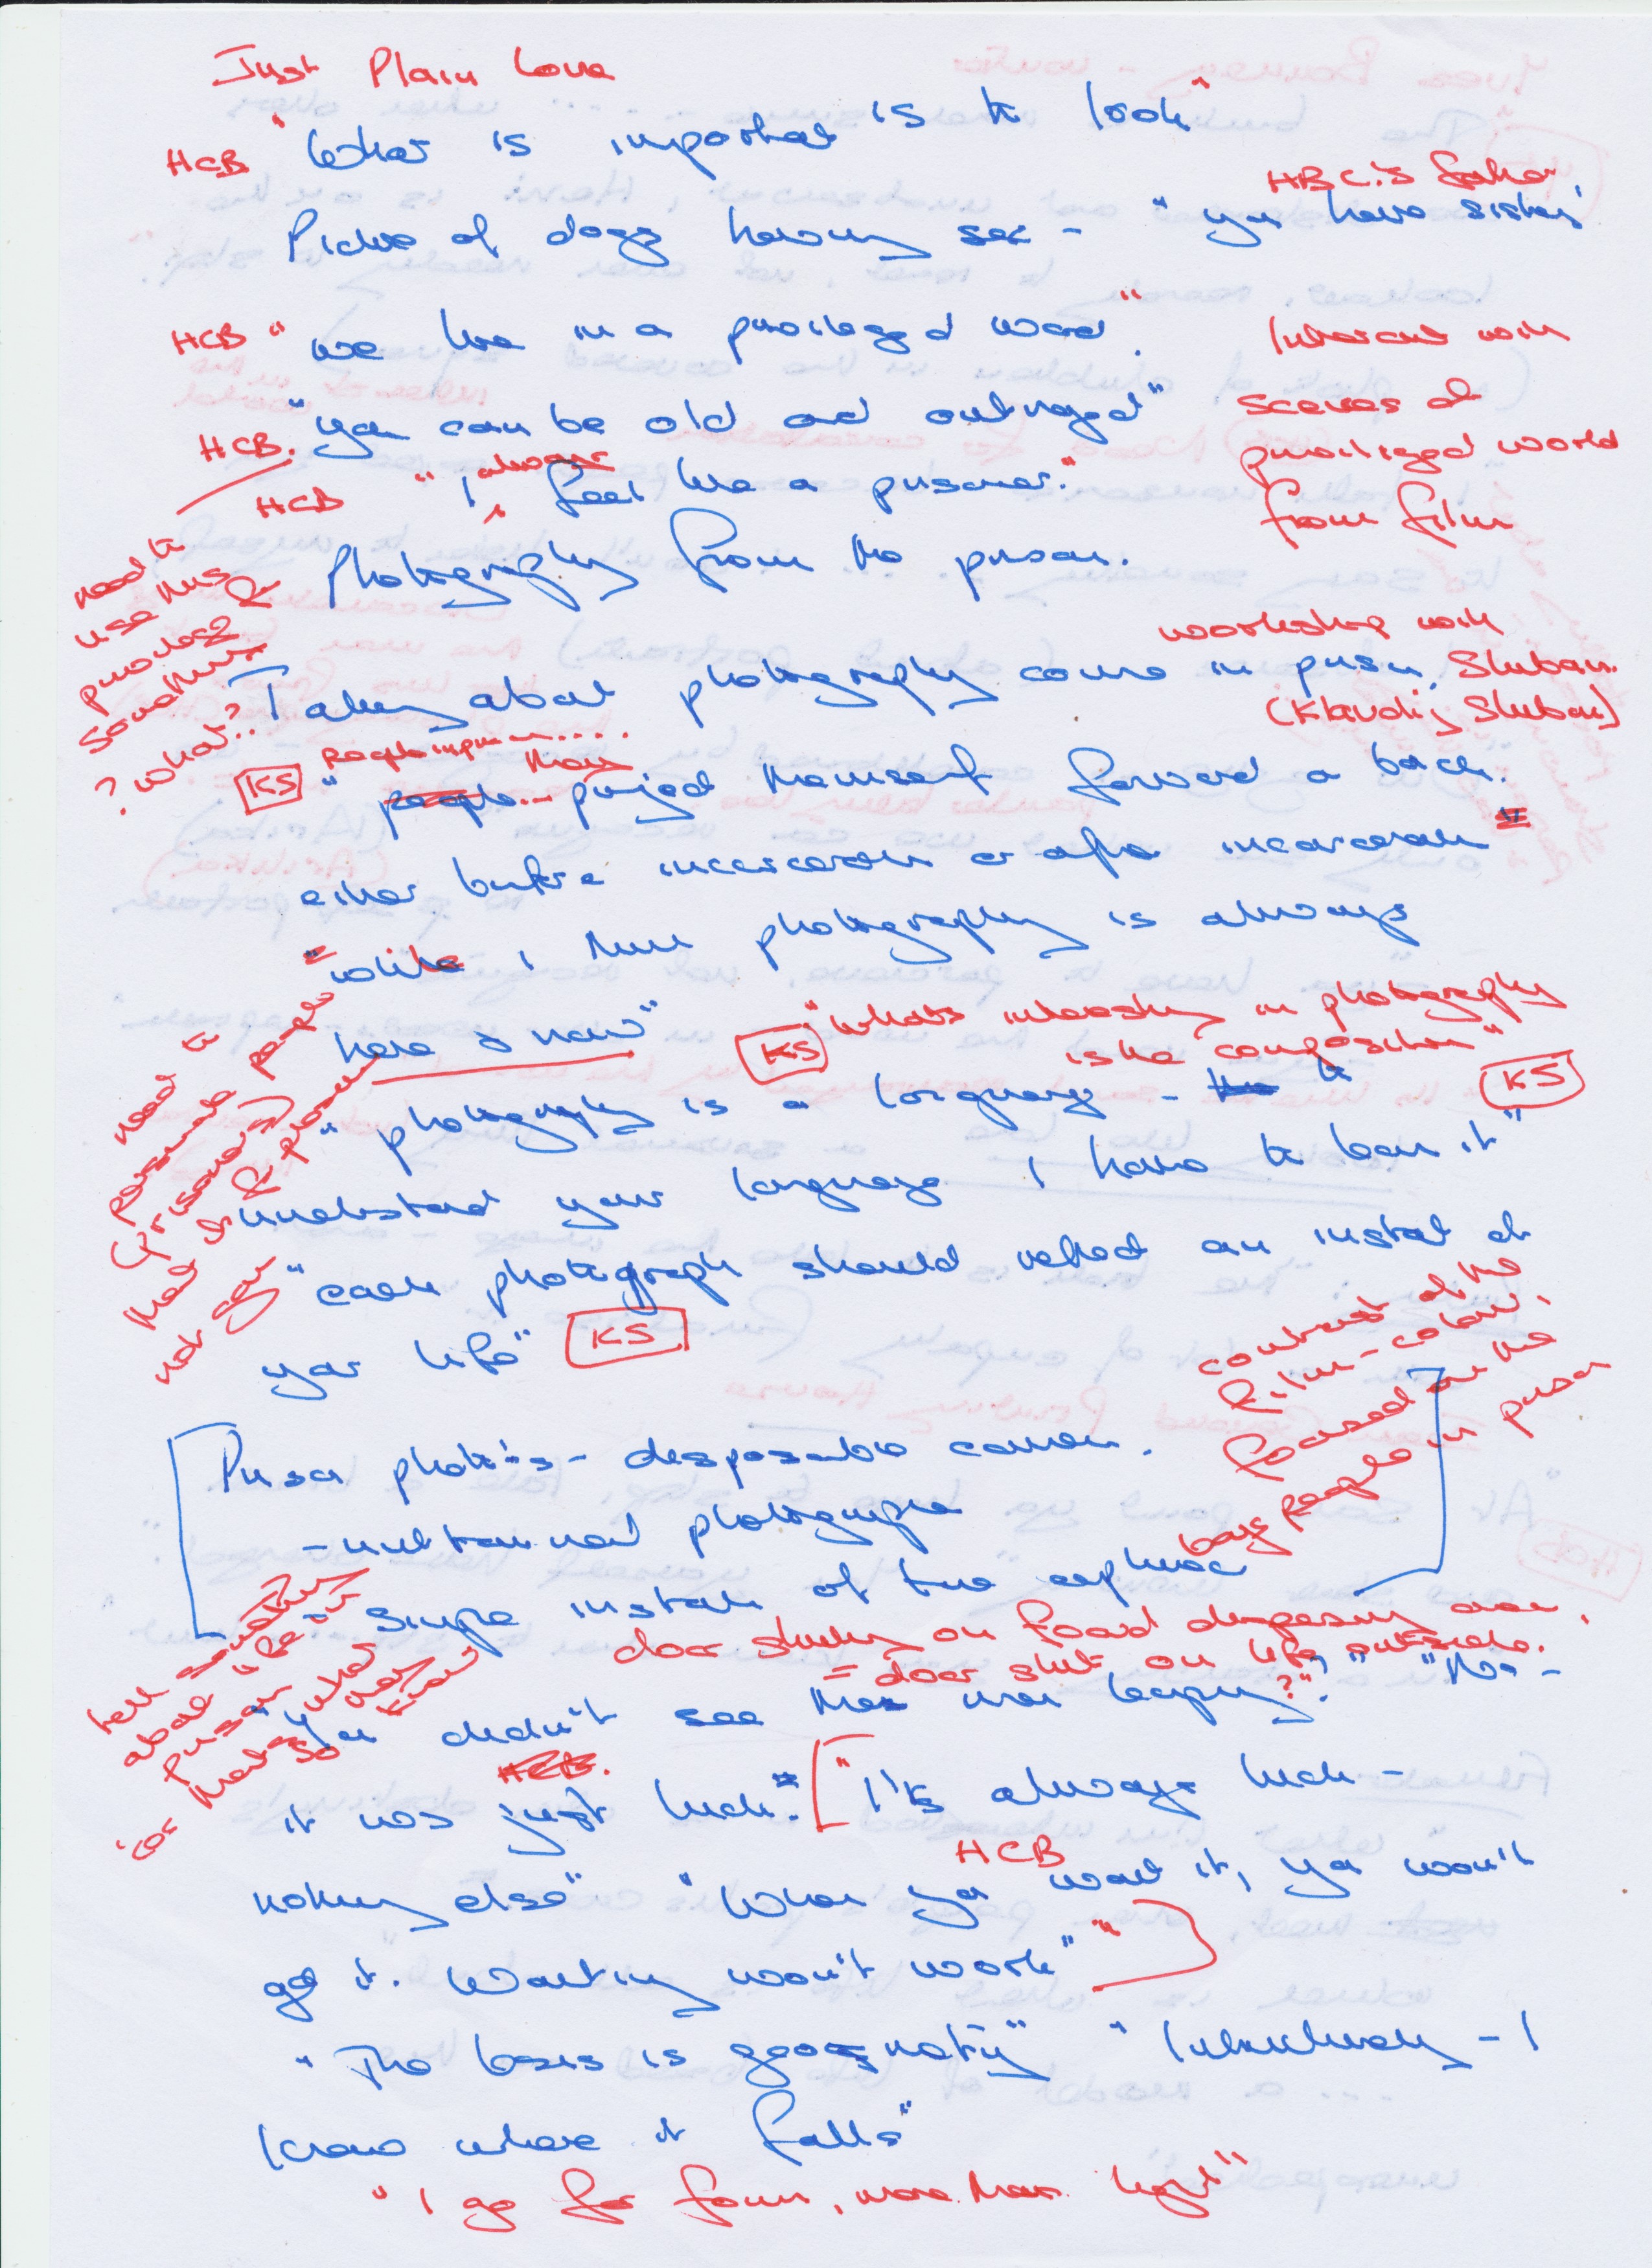 Just Plain Love
HCB "What is important is to look"
HBC.'s father,
Picture of dogs having sex - "you have sisters'
HCB "we live in a privileged world".
Intercut with
scenes of
privileged world
from film
HCB. "you can be old and outraged"
HCB "I always feel like a prisoner."
Photography from the prison.
need to
use this
phrase &
something
? what?
workshop with
Sluban.
(Klavdij Sluban)
Talking about photography course in prison.
people in prison.....
KS "people... they project themself forward or back.
either before incarceration or after incarceration"
"while I think photography is always
here & now"
KS "what's interesting in photography
is the composition"
KS
"photography is a language - to
understand your language I have to learn it"
need to
persuade people
(prisoners)
"each photograph should reflect an instant of
your life" KS
contrast of the
film - colour.
focused on the
boys people in prison
Prison photo's - disposable camera.
- untrained photographer
- single instant of time captured
door shutting on food dispensing area.
= door shut on life outside.
"You didn't see the man leaping?" "No -
it was just luck." ["It's always luck -
HCB
nothing else" "When you want it, you won't
get it. Wanting won't work" "]
"The basis is geometry" "Intuitively - I
know where it falls"
"I go for form, more than light"